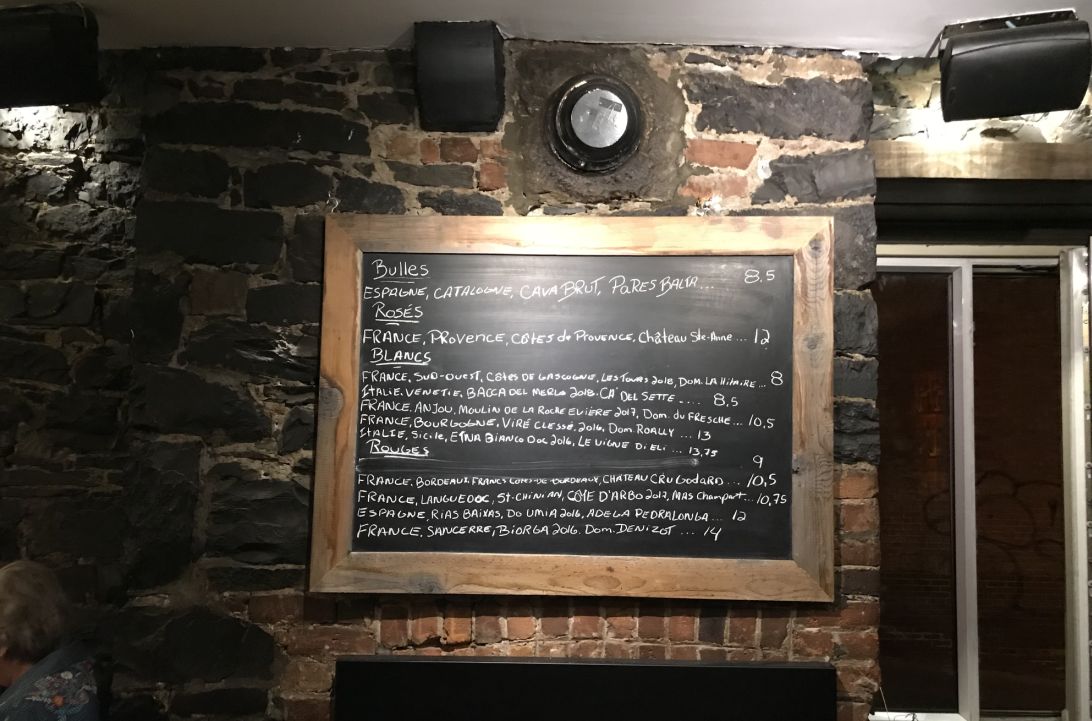 Bulles
ESPAGNE, CATALOGNE, CAVA BRUT, PARES BALTA... 8,5
Rosés
FRANCE, PROVENCE, Côtes de Provence, Château Ste-Anne ... 12
BLANCS
FRANCE, SUD-OUEST, Côtes DE GASCOGNE, LES TOURS 2018, DOM. LA HITAIRE ... 8
ITALIE, VENETIE, BACCA DEL MERLO 2018. CA' DEL SETTE .... 8,5
FRANCE, ANJOU, MOULIN DE LA ROCHE EVIÈRE 2017, DOM. du FRESCHE ... 10,5
FRANCE, BOURGOGNE, VIRÉ CLESSÉ, 2016, DOM. ROALLY ... 13
ITALIE, Sicile, ETNA BIANCO DOC 2016, LE VIGNE DI ELI ... 13,75
ROUGES
9
FRANCE, BORDEAUX, FRANCS CÔTES DE BORDEAUX, CHATEAU CRU Godard... 10,5
FRANCE, LANGUEDOC, St-CHINIAN, CÔTE D'ARBO 2017, MAS Champart... 10,75
ESPAGNE, RIAS BAIXAS, DO UMIA 2016, ADEGA PEDRALONGA... 12
FRANCE, SANCERRE, BIORGA 2016. DOM. DENIZOT ... 14